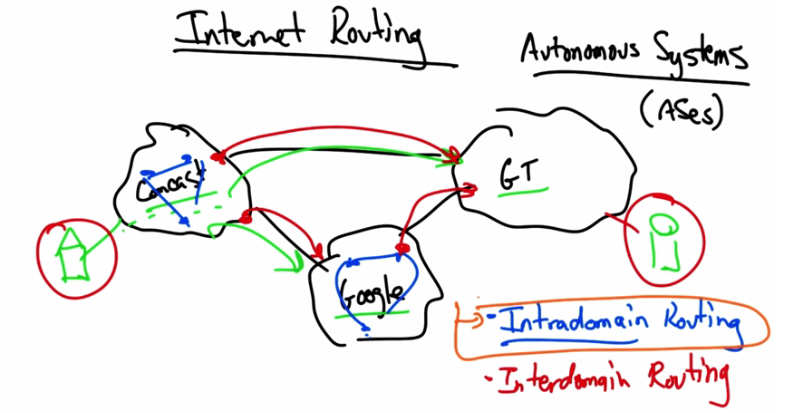 Internet Routing
Autonomous Systems
(ASes)
Comcast
GT
Google
- Intradomain Routing
- Interdomain Routing